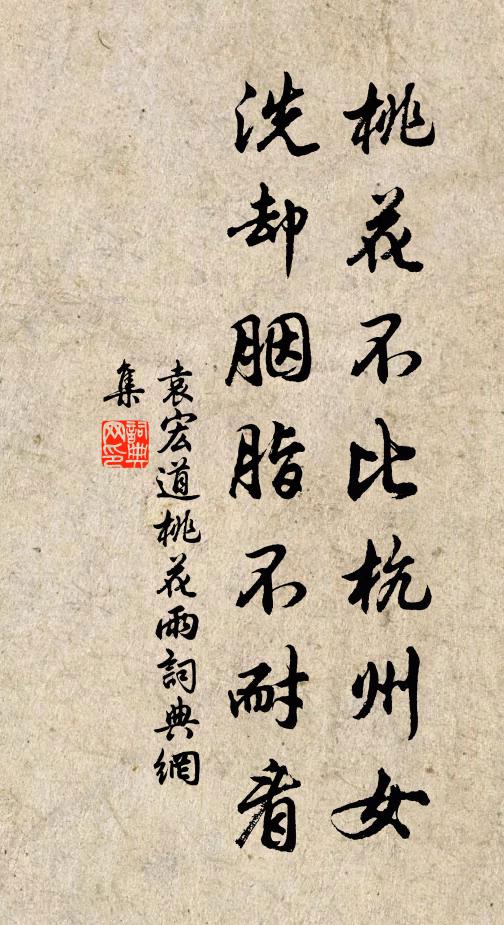 桃花不比杭州女
洗却胭脂不耐看
袁宏道桃花雨詞典網
集
詞典
网印